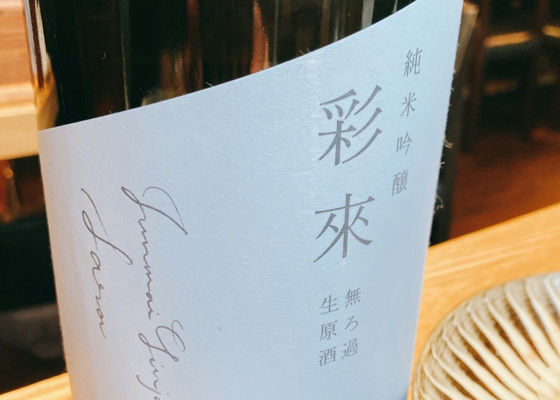 純米吟醸
彩來
無ろ過
生原酒
Junmai Ginjo
Sara